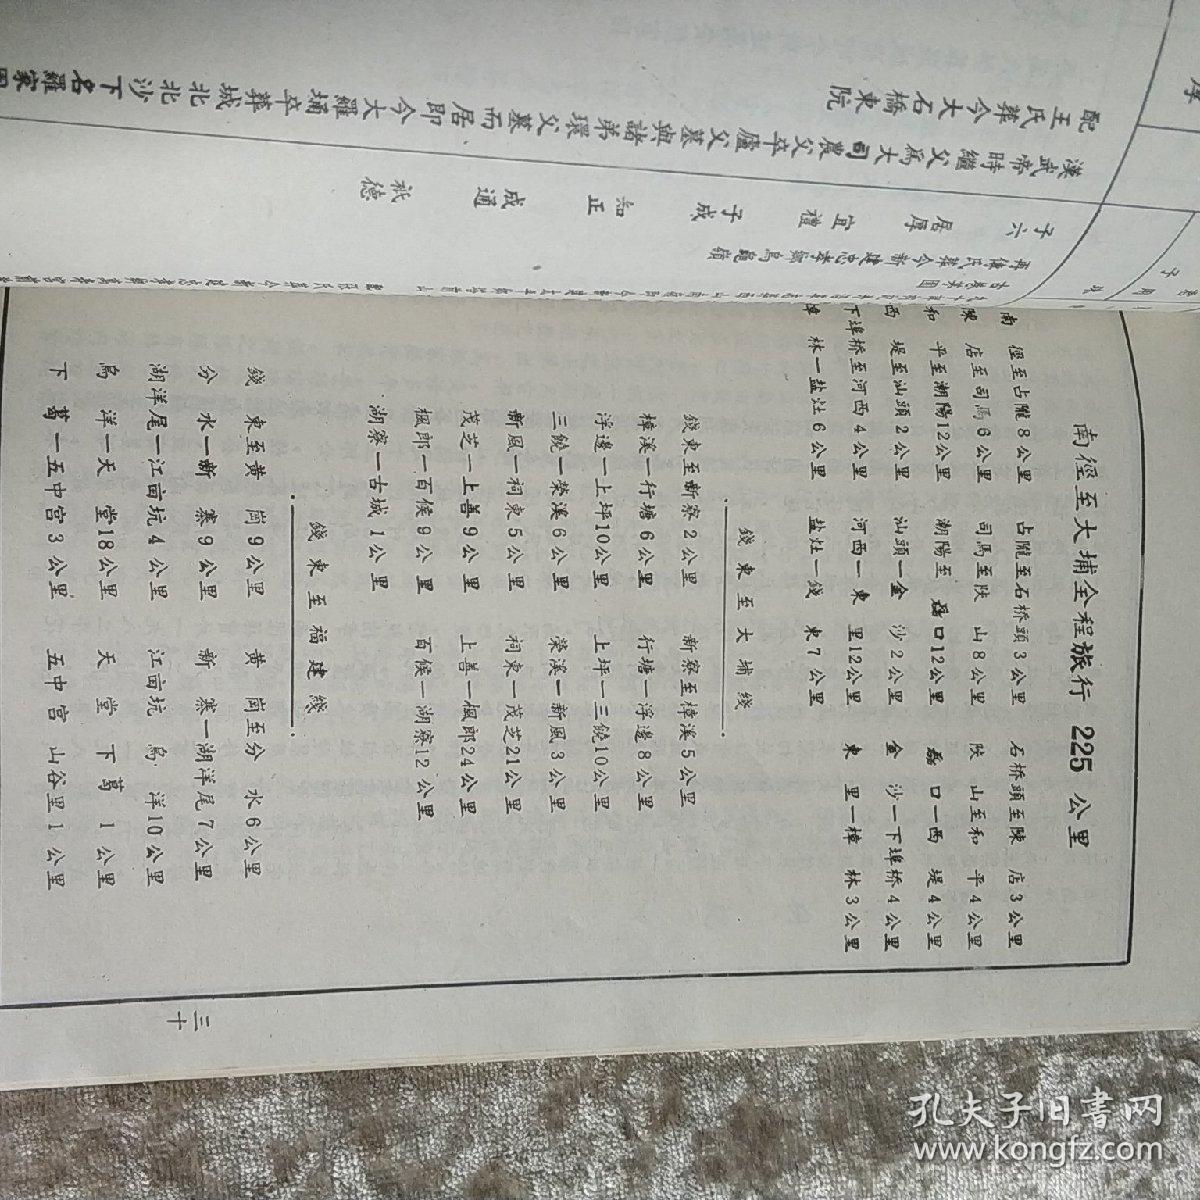 南徑至大埔全程旅行 225 公里
南徑至占隴8公里 占隴至石桥頭3公里 石桥頭至陳店3公里
陳店至司馬6公里 司馬至陕山8公里 陕山至和平4公里
和平至潮陽12公里 潮陽至磊口12公里 磊口一西堤4公里
西堤至汕頭2公里 汕頭一金沙2公里 金沙一下埠桥4公里
下埠桥至河西4公里 河西一東里12公里 東里一樟林3公里
樟林一盐灶6公里 盐灶一錢東7公里
錢東至大埔线
錢東至新寮2公里 新寮至樟溪5公里
樟溪一行塘6公里 行塘一浮邊8公里
浮邊一上坪10公里 上坪一三饒10公里
三饒一荣溪6公里 荣溪一新風3公里
新風一祠東5公里 祠東一茂芝21公里
茂芝一上善9公里 上善一楓郎24公里
楓郎一百候9公里 百候一湖寮12公里
湖寮一古城1公里
錢東至福建线
錢東至黄岗9公里 黄岗至分水6公里
分水一新寨9公里 新寨一湖洋尾7公里
湖洋尾一江亩坑4公里 江亩坑 烏洋10公里
烏洋一天堂18公里 天堂 下葛1公里
下葛一五中宫3公里 五中宫 山谷里1公里
三十
配王氏葬今大石橋東院
漢武帝時繼父爲大司農父卒廬父墓與諸弟環父墓而居即今大羅埇卒葬城北北沙下名羅家
子六 居厚 宜禮 子成 知正 成通 祇德
孔夫子旧書网
www.kongfz.com